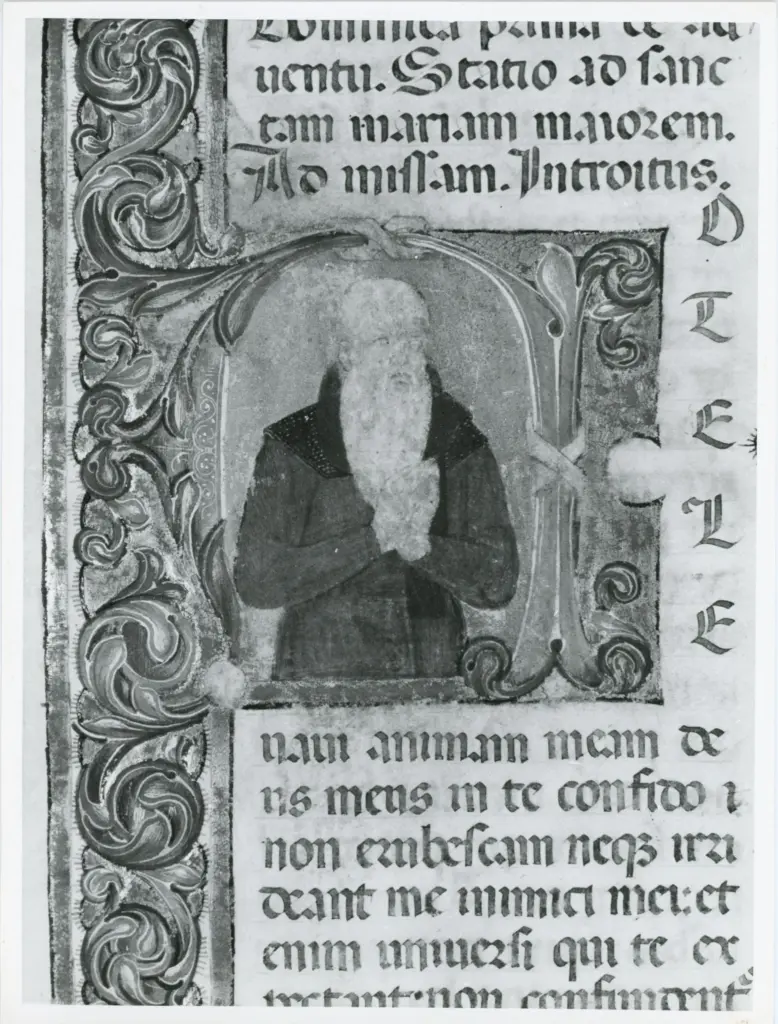 Dominica prima de ad
uentu. Statio ad sanc
tam mariam maiorem.
Ad missam. Introitus.
D
T
E
L
E
uaui animam meam de
us meus in te confido
non erubescam neq irri
deant me inimici mei: et
enim uniuersi qui te ex
pectant: non confundent